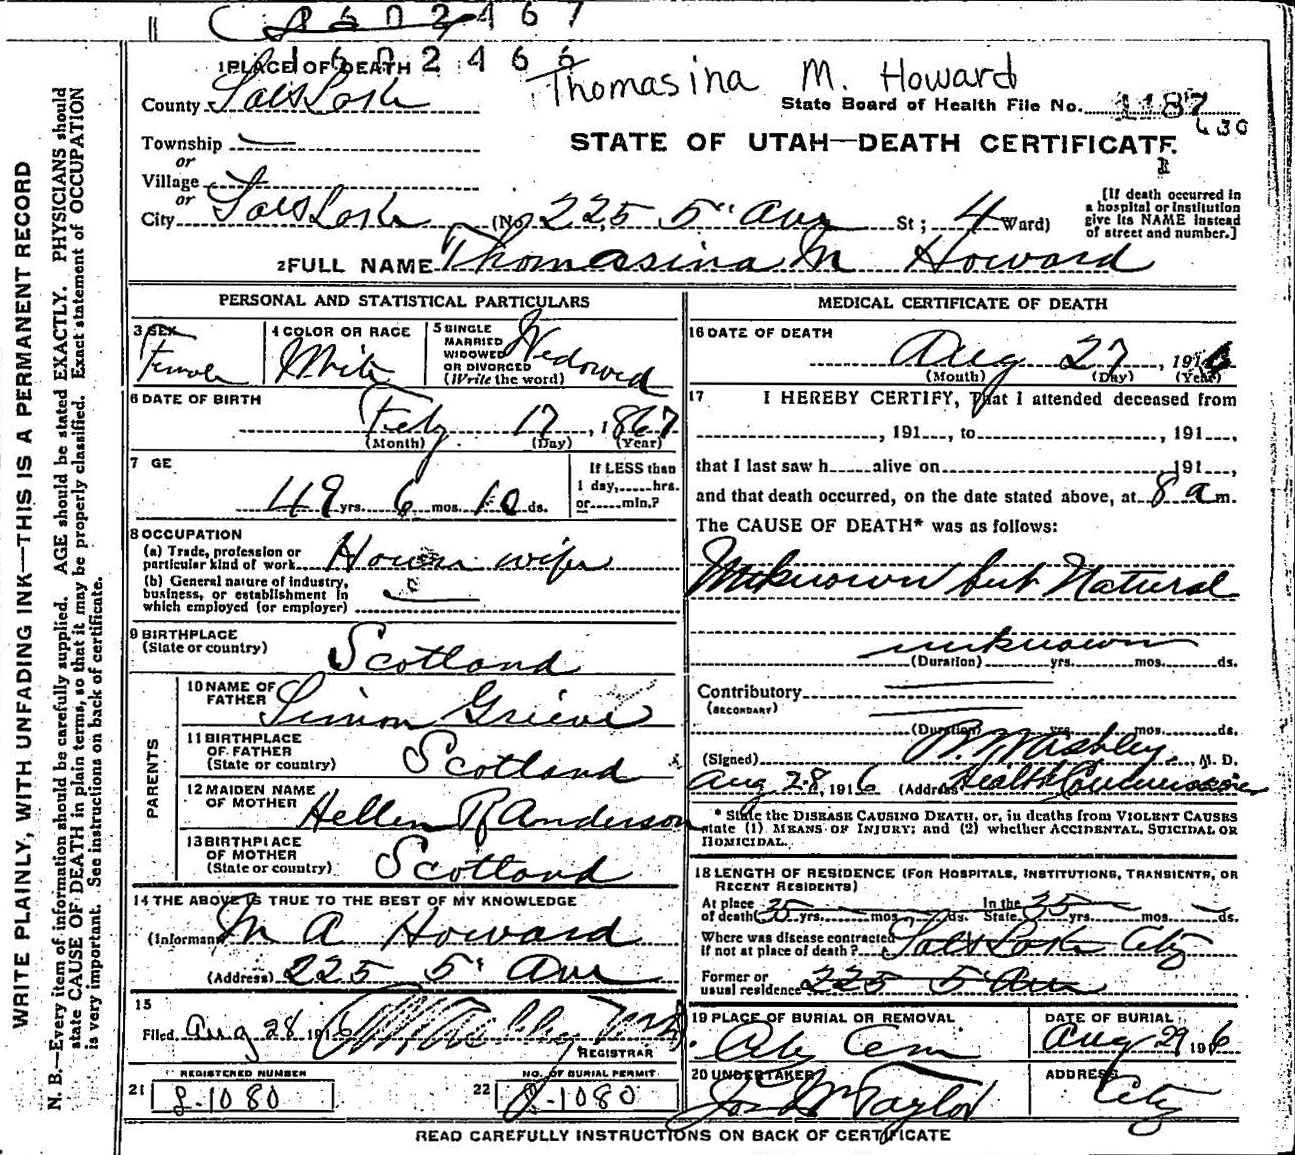 1602467
1602466
Thomasina M. Howard
1 PLACE OF DEATH
County Salt Lake
State Board of Health File No. 1187
630
Township
or
Village
or
City Salt Lake (No. 225 5" Ave St; 4 Ward)
STATE OF UTAH—DEATH CERTIFICATE
[If death occurred in
a hospital or institution
give its NAME instead
of street and number.]
2 FULL NAME Thomasina M Howard
PERSONAL AND STATISTICAL PARTICULARS
3 SEX
Female
4 COLOR OR RACE
White
5 SINGLE
MARRIED
WIDOWED
OR DIVORCED
(Write the word)
Widowed
6 DATE OF BIRTH
Feby 17, 1867
(Month) (Day) (Year)
7 GE
49 yrs. 6 mos. 10 ds.
If LESS than
1 day,......hrs.
or......min.?
8 OCCUPATION
(a) Trade, profession or
particular kind of work House wife
(b) General nature of industry,
business, or establishment in
which employed (or employer)
9 BIRTHPLACE
(State or country)
Scotland
PARENTS
10 NAME OF
FATHER
Simon Grieve
11 BIRTHPLACE
OF FATHER
(State or country)
Scotland
12 MAIDEN NAME
OF MOTHER
Hellen R Anderson
13 BIRTHPLACE
OF MOTHER
(State or country)
Scotland
14 THE ABOVE IS TRUE TO THE BEST OF MY KNOWLEDGE
(Informant M A Howard
(Address) 225 5" Ave
15
Filed Aug 28 1916
REGISTRAR
REGISTERED NUMBER
21 S-1080
NO. OF BURIAL PERMIT
22 S-1080
MEDICAL CERTIFICATE OF DEATH
16 DATE OF DEATH
Aug 27, 1916
(Month) (Day) (Year)
17 I HEREBY CERTIFY, That I attended deceased from
, 191..., to , 191...,
that I last saw h......alive on 191...,
and that death occurred, on the date stated above, at 8 a m.
The CAUSE OF DEATH* was as follows:
Unknown but Natural
unknown
(Duration) yrs. mos. ds.
Contributory
(SECONDARY)
(Duration) yrs. mos. ds.
(Signed) Ashley, M. D.
Aug 28, 1916 (Address Health Commissioner
* State the DISEASE CAUSING DEATH, or, in deaths from VIOLENT CAUSES
state (1) MEANS OF INJURY; and (2) whether ACCIDENTAL, SUICIDAL OR
HOMICIDAL.
18 LENGTH OF RESIDENCE (FOR HOSPITALS, INSTITUTIONS, TRANSIENTS, OR
RECENT RESIDENTS)
At place
of death 35 yrs. mos. ds. In the
State 35 yrs. mos. ds.
Where was disease contracted
if not at place of death? Salt Lake City
Former or
usual residence 225 5" Ave
19 PLACE OF BURIAL OR REMOVAL
City Cem
DATE OF BURIAL
Aug 29 1916
20 UNDERTAKER
Jos Wm Taylor
ADDRESS
City
READ CAREFULLY INSTRUCTIONS ON BACK OF CERTIFICATE
WRITE PLAINLY, WITH UNFADING INK—THIS IS A PERMANENT RECORD
N. B.—Every item of information should be carefully supplied. AGE should be stated EXACTLY. PHYSICIANS should
state CAUSE OF DEATH in plain terms, so that it may be properly classified. Exact statement of OCCUPATION
is very important. See instructions on back of certificate.